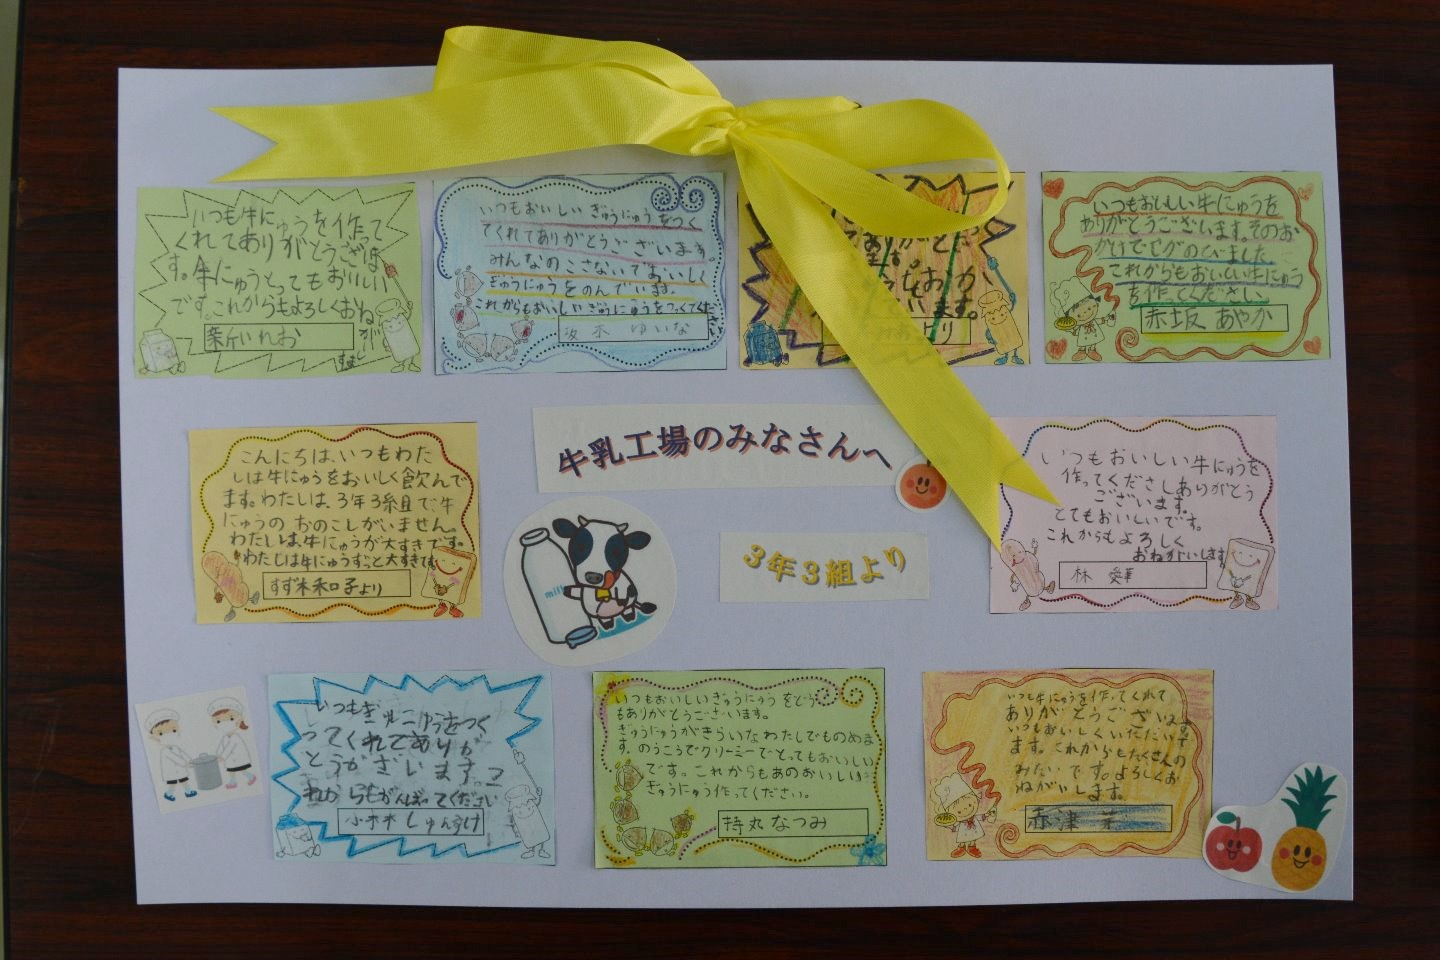 いつも牛にゅうを作って
くれてありがとうござま
す。牛にゅうとってもおいしい
です。これからもよろしくおね
がいし
ます
いつもおいしいぎゅうにゅうをつく
てくれてありがとうございます。
みんなのこさないでおいしく
ぎゅうにゅうをのんでいます。
これからもおいしいぎゅうにゅうをつくてくだ
さい
坂木 ゆいな
いつもおいしい牛にゅうを
ありがとうございます。そのお
かげでせがのびました。
これからもおいしい牛にゅう
を作てください。
赤坂 あやか
牛乳工場のみなさんへ
3年3組より
こんにちは、いつもわた
しは牛にゅうをおいしく飲んで
ます。わたしは、3年3組で、牛
にゅうの、おのこしがいません。
わたしは、牛にゅうが大すきです。
わたしは牛にゅうずと大すきです
すず木和子より
いつもおいしい牛にゅうを
作ってくださしありがとう
ございます。
とてもおいしいです。
これからもよろしく
おねがいします
林 愛華
いつもぎゅにゅうをつく
ってくれてありが
とうございます。こ
れからもがんばってください
小木木しゅんすけ
いつもおいしいぎゅうにゅうをどう
もありがとうございます。
ぎゅうにゅうがきらいなわたしでものめま
す。のうこうでクリーミーでとってもおいしい
です。これからもあのおいしい
ぎゅうにゅう作ってください。
持丸なつみ
いつも牛にゅうを作ってくれて
ありがとうございます
いつもおいしくいただいて
ます。これからもたくさんの
みたいです。よろしくお
ねがいします。
milk